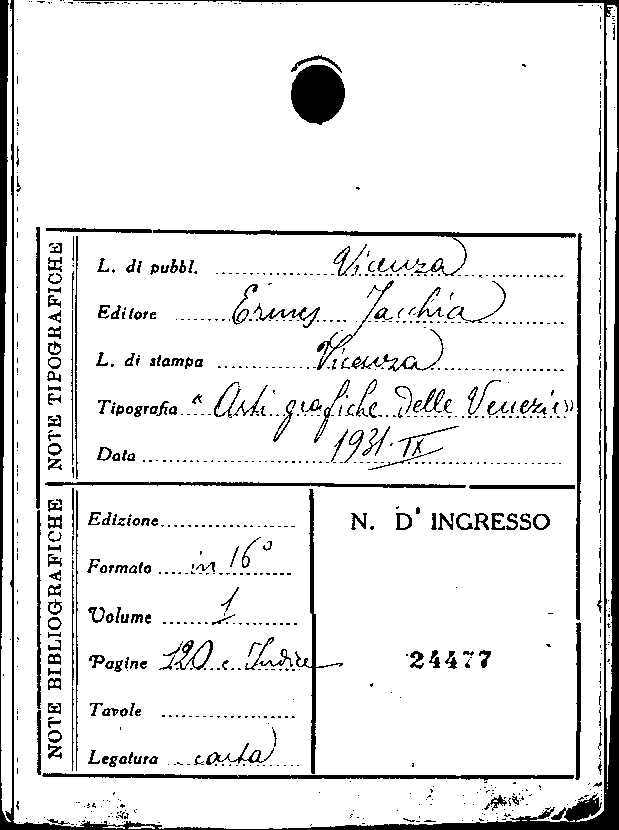 NOTE TIPOGRAFICHE
L. di pubbl. Vicenza
Editore Ermes Jacchia
L. di stampa Vicenza
Tipografia "Arti grafiche delle Venezie"
Data 1931-IX
NOTE BIBLIOGRAFICHE
Edizione
Formato in 16°
Volume 1
Pagine 120 e Indice
Tavole
Legatura carta
N. D' INGRESSO
24477